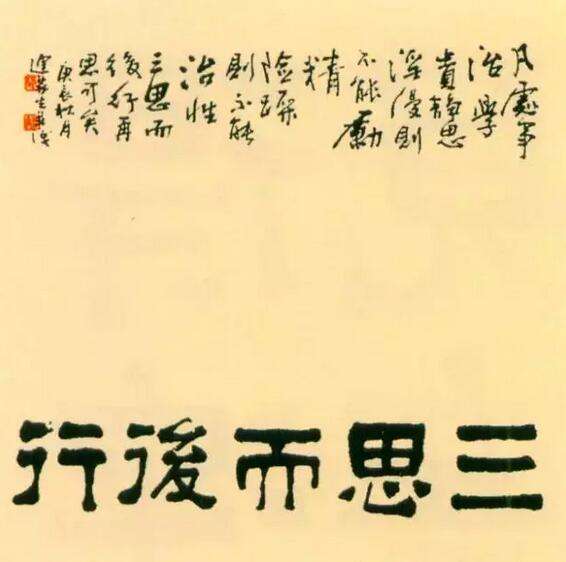 凡處事
治學
貴靜思
淫慢則
不能勵
精
險躁
則不能
治性
三思而
後行再
思可矣
庚辰秋月
三思而後行